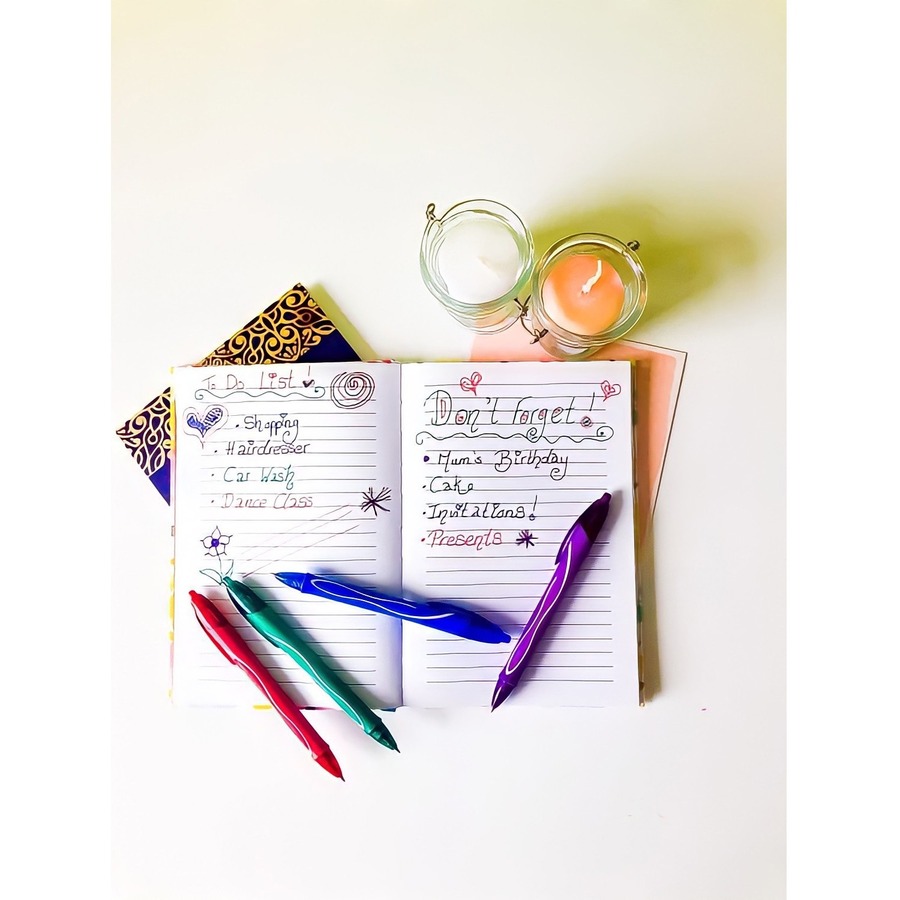 To Do List!
• Shopping
• Hairdresser
• Car Wash
• Dance Class
Don't Forget!
• Mum's Birthday
• Cake
• Invitations!
• Presents